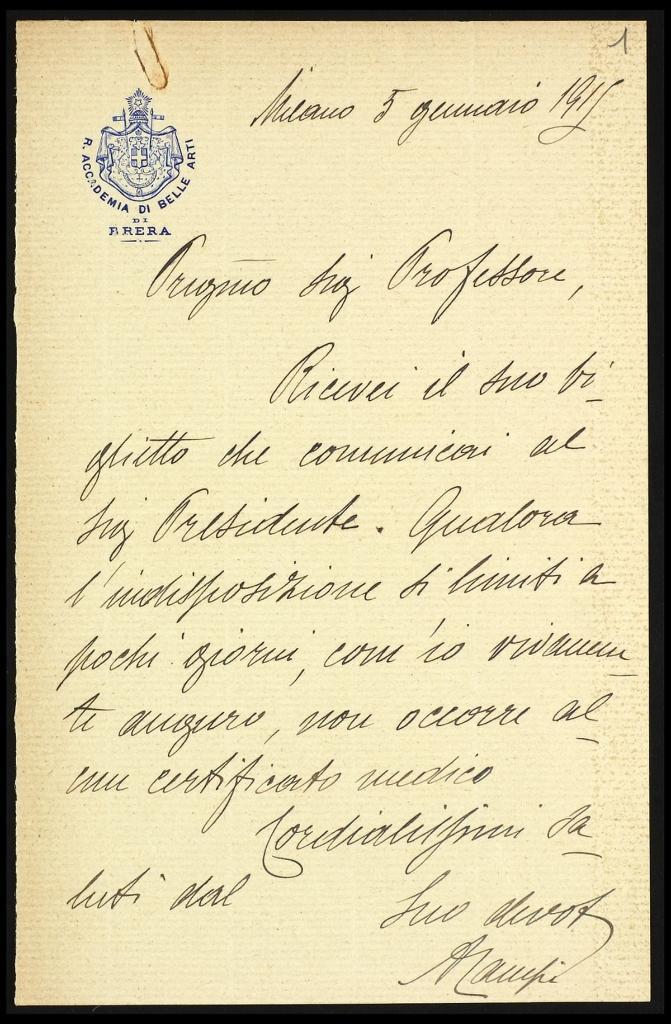 1
Milano 5 gennaio 1915
R. ACCADEMIA DI BELLE ARTI
DI
BRERA
Pregmo Sig Professore,
Ricevei il suo bi-
glietto che comunicai al
Sig Presidente. Qualora
l'indisposizione si limiti a
pochi giorni, com'io vivamen-
te auguro, non occorre al-
cun certificato medico
Cordialissimi sa-
luti dal
Suo devot